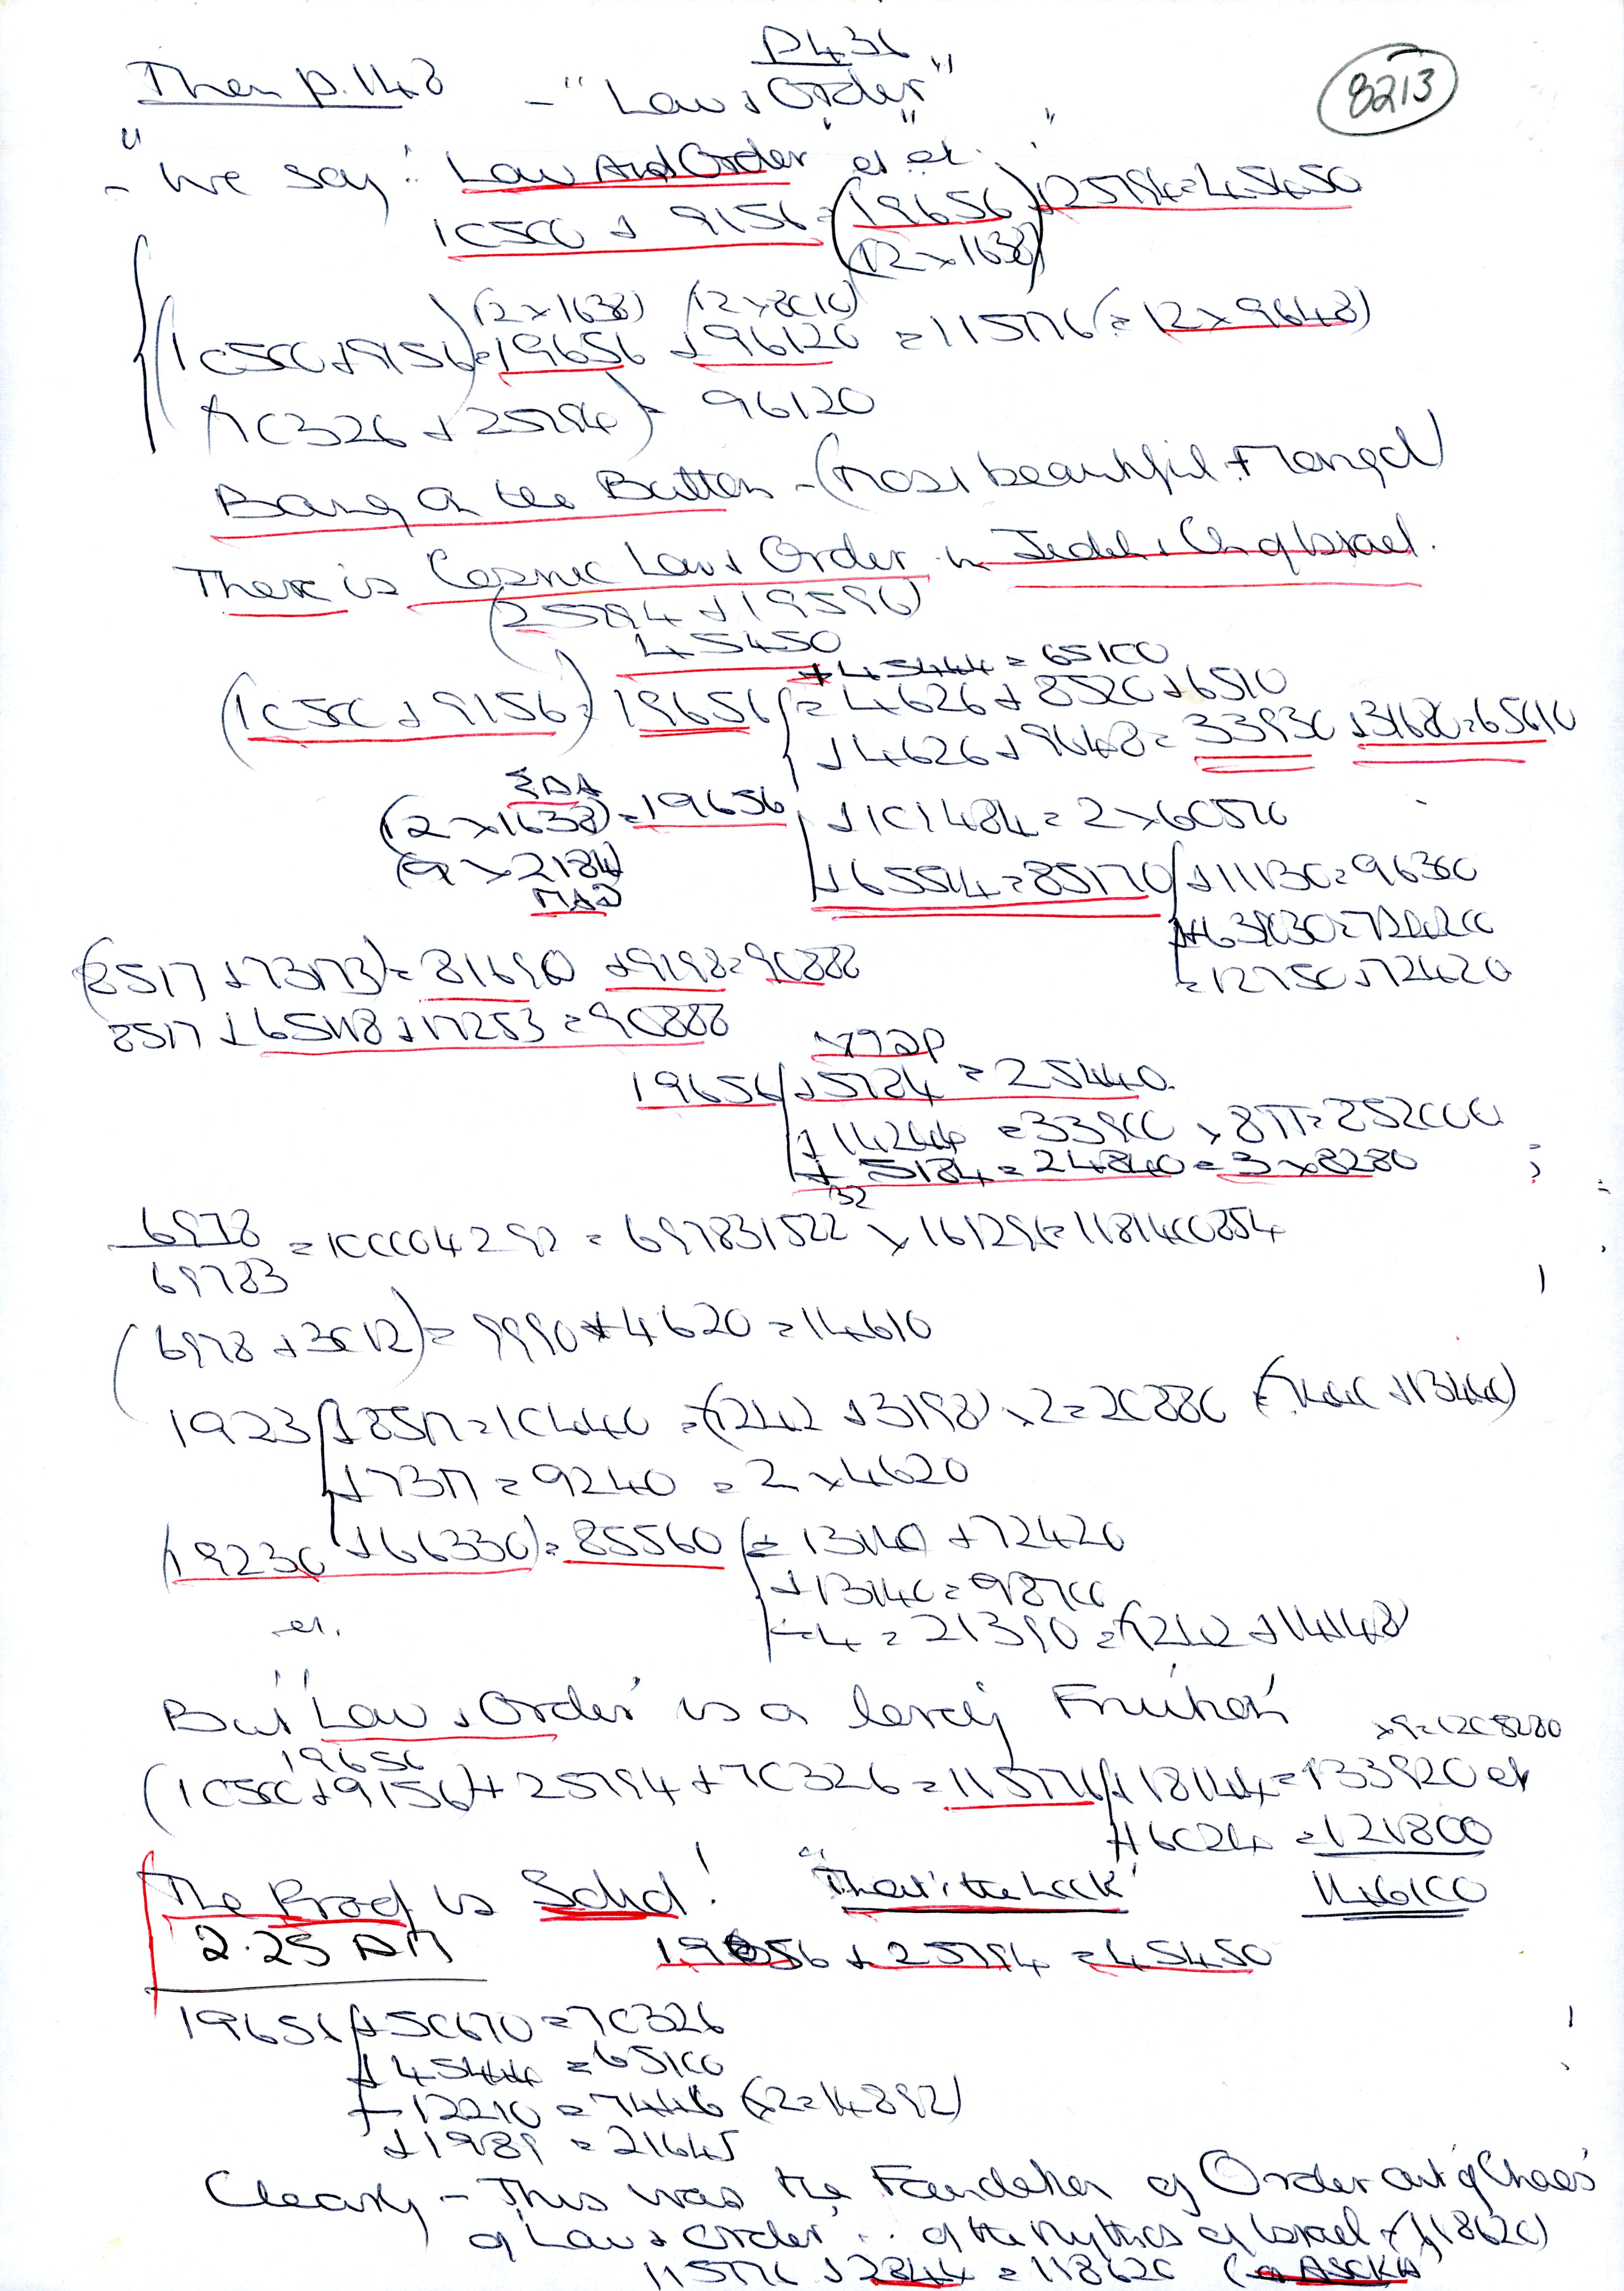 P436
8213
Then p.148 - "Law & Order"
- "We say: Law And Order et al."
10500 + 9156 = (19656) + 25794 = 45450
(12 x 1638)
(12 x 1638) (12 x 8010)
(10500 + 9156) = 19656 + 96120 = 115776 (= 12 x 9648)
(70326 + 25794) = 96120
Bang on the Button - (most beautiful
There is Cosmic Law & Order in Judah & Israel.
(25794 + 19596)
45450
+ 45444 = 65100
(10500 + 9156) = 19656 = 4626 + 8520 + 6510
+ 4626 + 9648 = 33930 + 31680 = 65610
(12 x 1638) = 19656 + 101484 = 2 x 60570
(9 x 2184) + 65514 = 85170 + 11130 = 96300
= 12750 + 72420
(8517 + 73173) = 81690 + 9198 = 90888
8517 + 65118 + 17253 = 90888
19656 + 5784 = 25440
+ 14244 = 33900 x 8π = 852000
+ 5184 = 24840 = 3 x 8280
6978 = 100004292 = 697831522³² x 161296 = 1181400854
69783
(6978 + 3012) = 9990 + 4620 = 14610
1923 + 8517 = 10440 = (7242 + 3198) x 2 = 20880
+ 7317 = 9240 = 2 x 4620
(19230 + 66330) = 85560 (= 13140 + 72420
+ 13140 = 98700
÷ 4 = 21390 = (7242 + 14148)
et.
But 'Law & Order' is a lovely 'Fruition'
19656
x 9 = 1208280
(10500 + 9156) + 25794 + 70326 = 115776 + 18144 = 133920 et
+ 6024 = 121800
The Proof is Solid! "That's the
146100
2.25 AM 19656 + 25794 = 45450
19656 + 50670 = 70326
+ 45444 = 65100
- 12210 = 7446 (x 2 = 14892)
+ 1989 = 21645
Clearly - This was the Foundation of Order out of Chaos
of 'Law & Order' .. of the Mythos of Israel - (118620)
115776 + 2844 = 118620